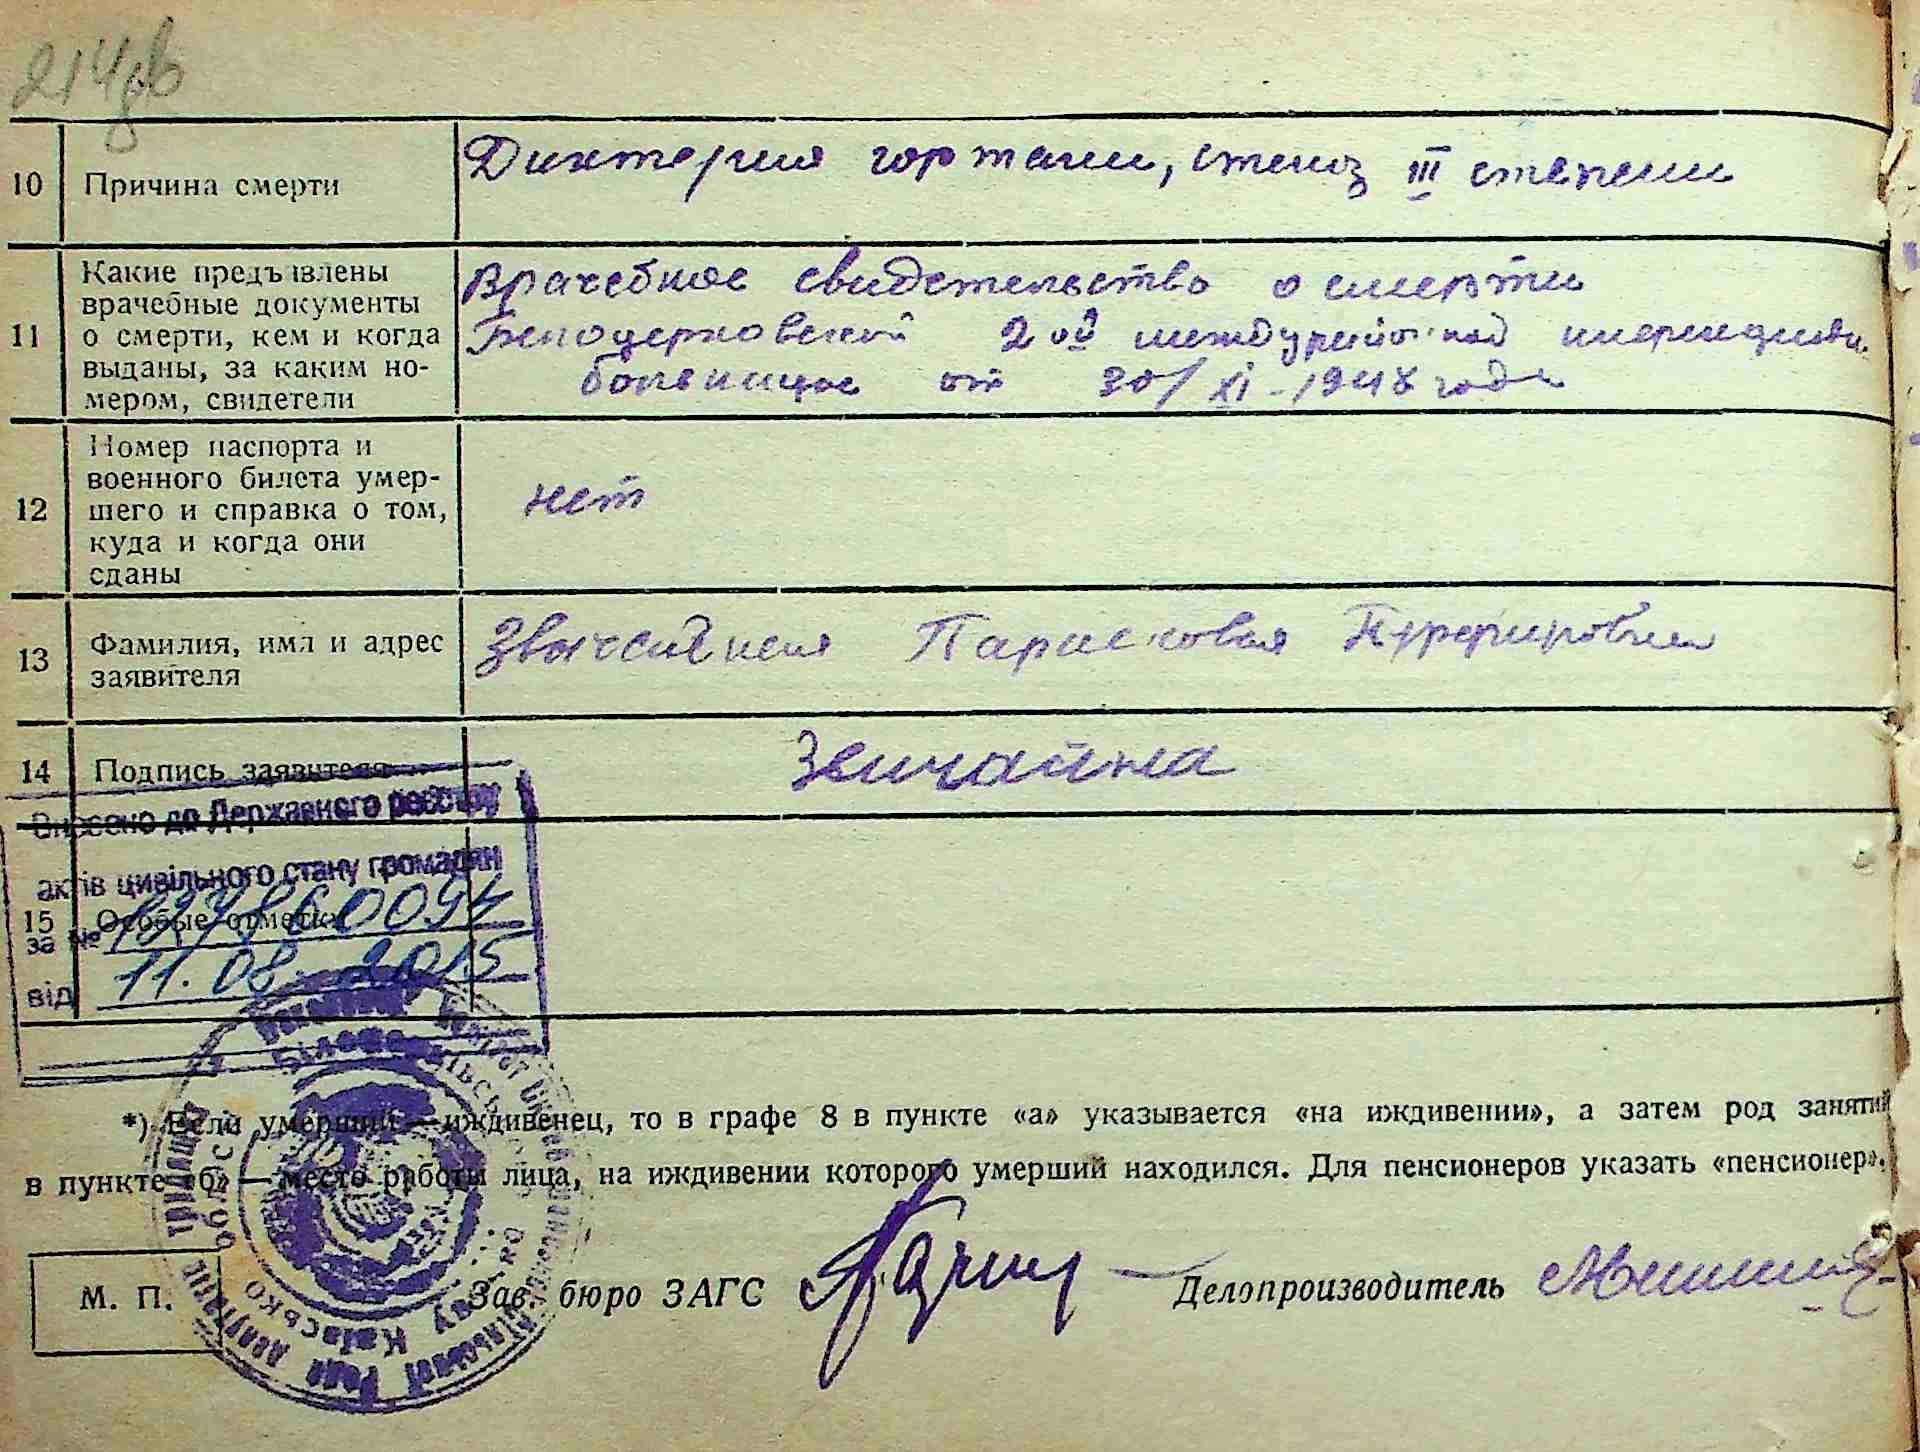 214
10 Причина смерти
Дихтерия гортани, стеноз III степени
11 Какие предъявлены
врачебные документы
о смерти, кем и когда
выданы, за каким но-
мером, свидетели
Врачебное свидетельство о смерти
Белоцерковской 2ой
больницы от 30/XI-1948 года
12 Номер паспорта и
военного билета умер-
шего и справка о том,
куда и когда они
сданы
нет
13 Фамилия, имя и адрес
заявителя
Звычейная Парасковья
14 Подпись заявителя
Звичайна
Внесено до Державного реєстру
актів цивільного стану громадян
15 Особые отметки
за №
від 11.08.2015
*) Если умерший — иждивенец, то в графе 8 в пункте «а» указывается «на иждивении», а затем род занятий
в пункте «б» — место работы лица, на иждивении которого умерший находился. Для пенсионеров указать «пенсионер».
М. П.
Зав. бюро ЗАГС
Делопроизводитель